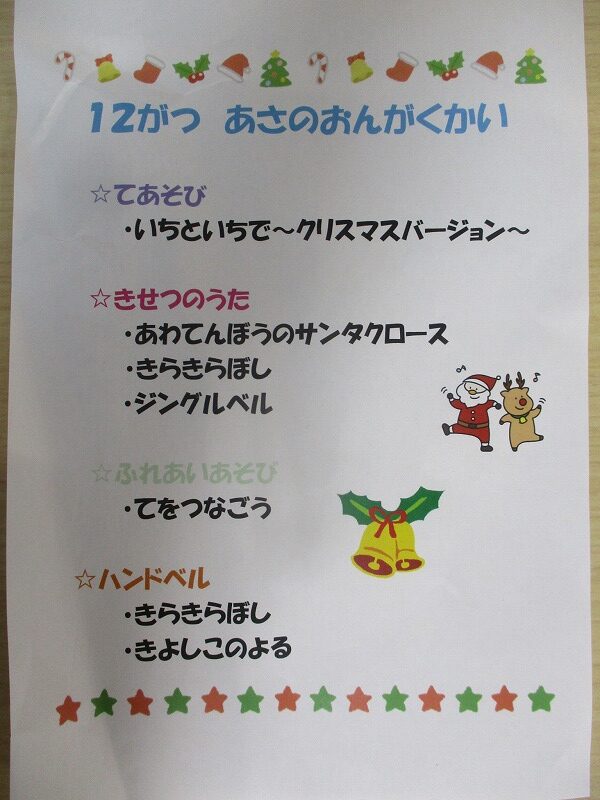 12がつ あさのおんがくかい
☆てあそび
・いちといちで～クリスマスバージョン～
☆きせつのうた
・あわてんぼうのサンタクロース
・きらきらぼし
・ジングルベル
☆ふれあいあそび
・てをつなごう
☆ハンドベル
・きらきらぼし
・きよしこのよる